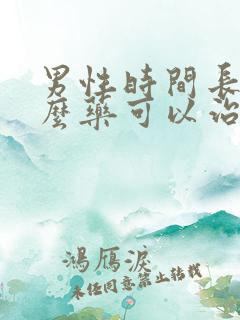 男性時間長
麼藥可以治
鴻雁淚
未任同意禁止转载